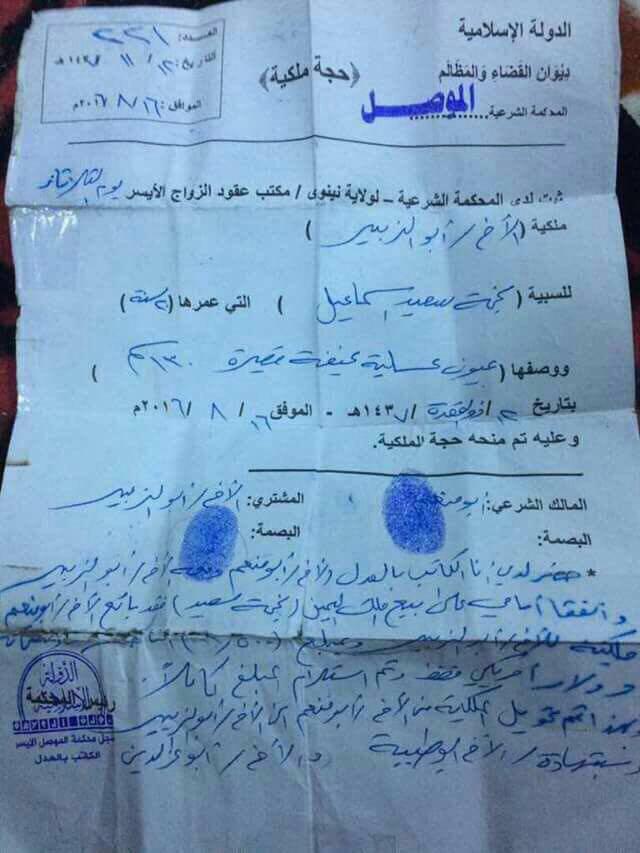 الدولة الإسلامية
ديوان القضاء والمظالم
المحكمة الشرعية الموصل
﴿حجة ملكية﴾
العدد: ٢٢١
التاريخ: ١٢ / ١١ / ١٤٣٧ هـ
الموافق: ١٦ / ٨ / ٢٠١٦م
ثبت لدى المحكمة الشرعية – لولاية نينوى / مكتب عقود الزواج الأيسر يوم
ملكية (الأخ / أبو الزبير)
للسبية ( سعيد اسماعيل ) التي عمرها (٢٠ سنة)
ووصفها (عيون عسلية نحيفة قصيرة ١٣٠ سم)
بتاريخ ١٢ / ذو القعدة / ١٤٣٧هـ – الموافق ١٦ / ٨ / ٢٠١٦م
وعليه تم منحه حجة الملكية.
المالك الشرعي: أبو منعم
المشتري: الأخ / أبو الزبير
البصمة:
البصمة:
* حضر لدي أنا الكاتب بالعدل الأخ / أبو منعم ومعه أخ / أبو الزبير
واتفقا أمامي على بيع ملك اليمين ( سعيد) فقد بائع الأخ / أبو منعم
ملكية للأخ / أبو الزبير وبمبلغ (١٥٠٠)
دولار أمريكي فقط وتم استلام المبلغ كاملاً.
وبهذا تم تحويل الملكية من الأخ / أبو منعم الى الأخ / أبو الزبير
وبشهادة / الأخ و الأخ / أبو عز الدين
الدولة الإسلامية
سجل محكمة الموصل الأيسر
الكاتب بالعدل